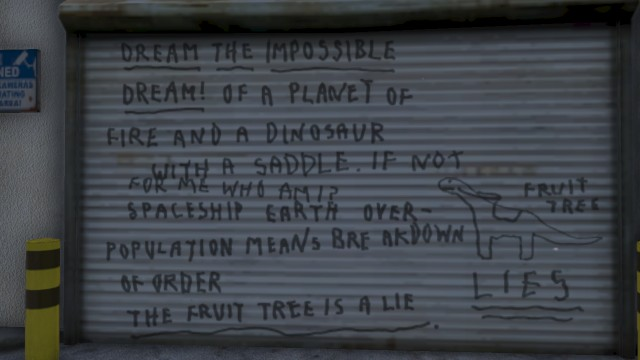 NED
CAMERAS
DREAM THE IMPOSSIBLE
DREAM! OF A PLANET OF
FIRE AND A DINOSAUR
WITH A SADDLE. IF NOT
FOR ME WHO AM I?
SPACESHIP EARTH OVER-
POPULATION MEANS BREAKDOWN
OF ORDER
THE FRUIT TREE IS A LIE.
FRUIT
TREE
LIES